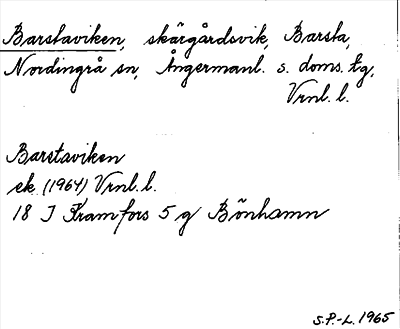 Barstaviken, skärgårdsvik, Barsta,
Nordingrå sn, Ångermanl. s. doms. tg,
Vrnl. l.
Barstaviken
ek. (1964) Vrnl. l.
18 J Kramfors 5 g Bönhamn
S.P.-L. 1965